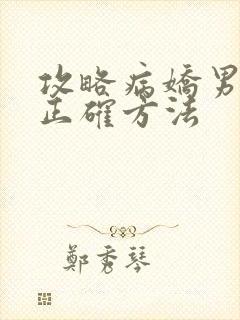 攻略病嬌男
正確方法
鄭秀琴